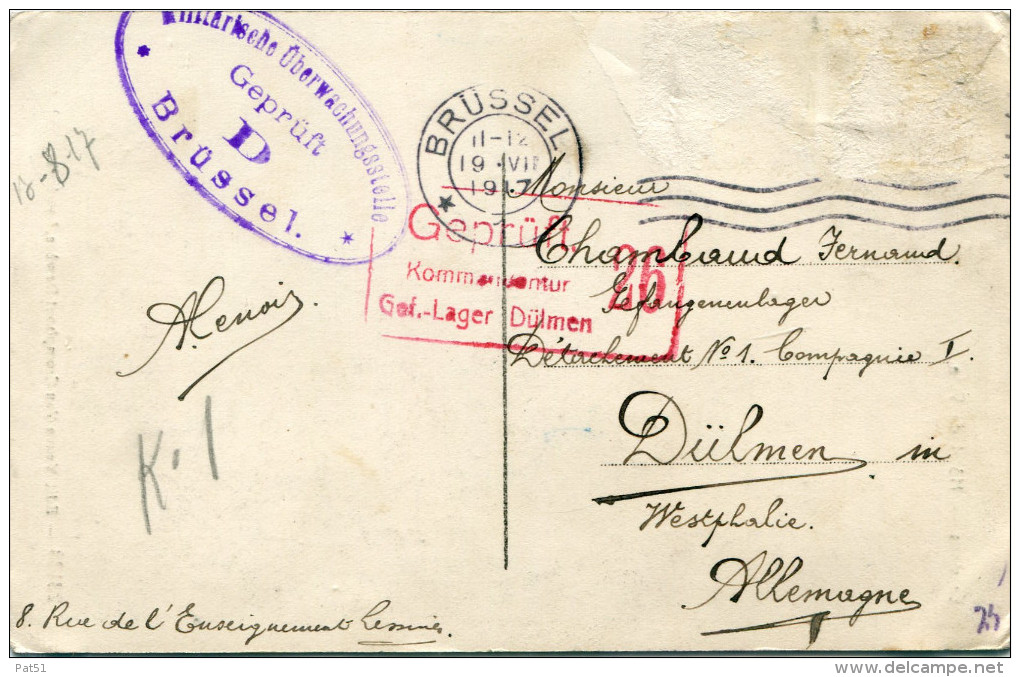 Militärische Überwachungsstelle
Geprüft
D
Brüssel.
18-8-17
BRÜSSEL
11-12
19 VII
1917
Geprüft
Kommandantur
Gef.-Lager Dülmen
26
Monsieur
Chambaud Fernand.
Gefangenenlager
Détachement No 1. Compagnie I.
Dülmen in
Westphalie.
Allemagne
A. Lenoir.
K. 1
8. Rue de l'Enseignement Lessines.
Pat51
www.delcampe.net